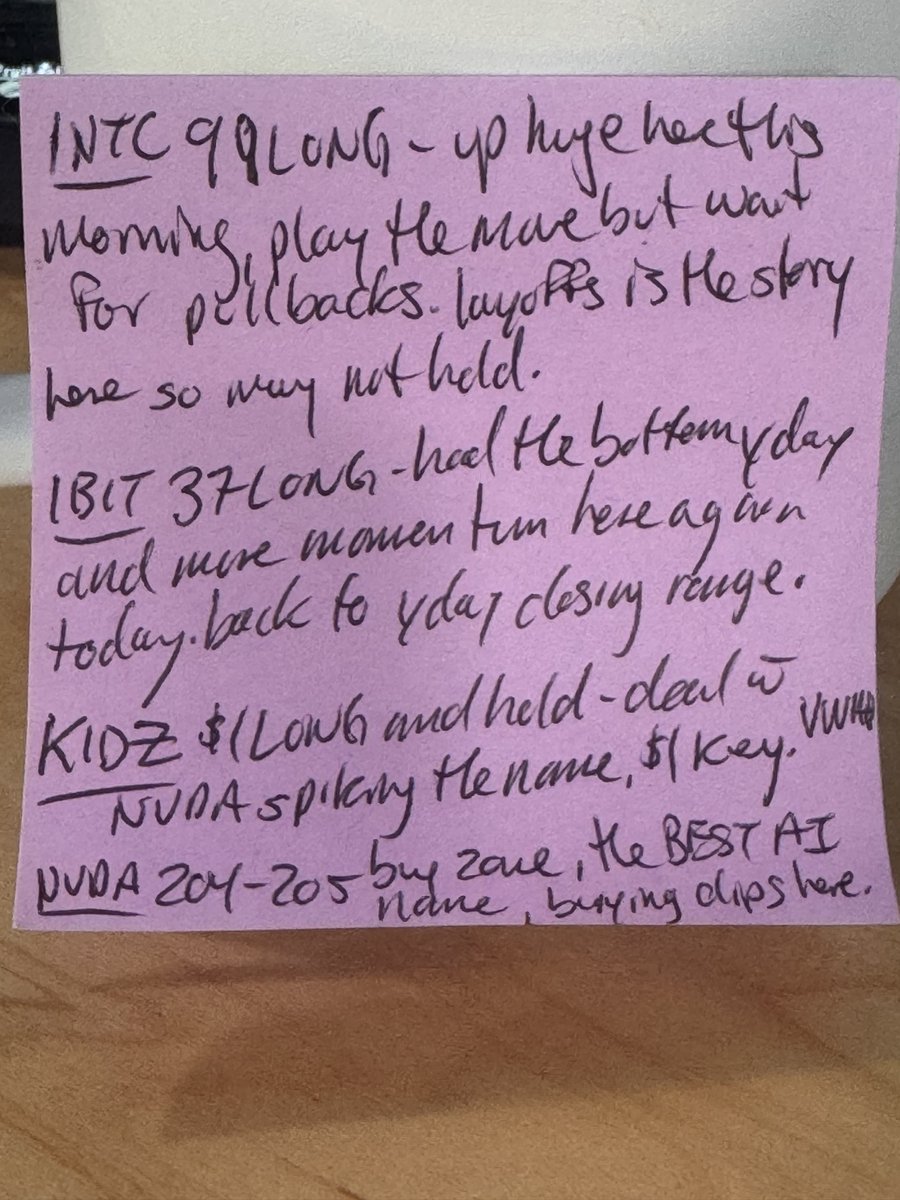 INTC 99 LONG - up huge here this
morning, play the move but wait
for pullbacks. layoffs is the story
here so may not hold.
IBIT 37 LONG - had the bottom yday
and more momentum here again
today. back to yday closing range.
KIDZ $1 LONG and hold - deal w̄
NVDA spiking the name, $1 key.
NVDA 204-205 buy zone, the BEST AI
name, buying dips here.